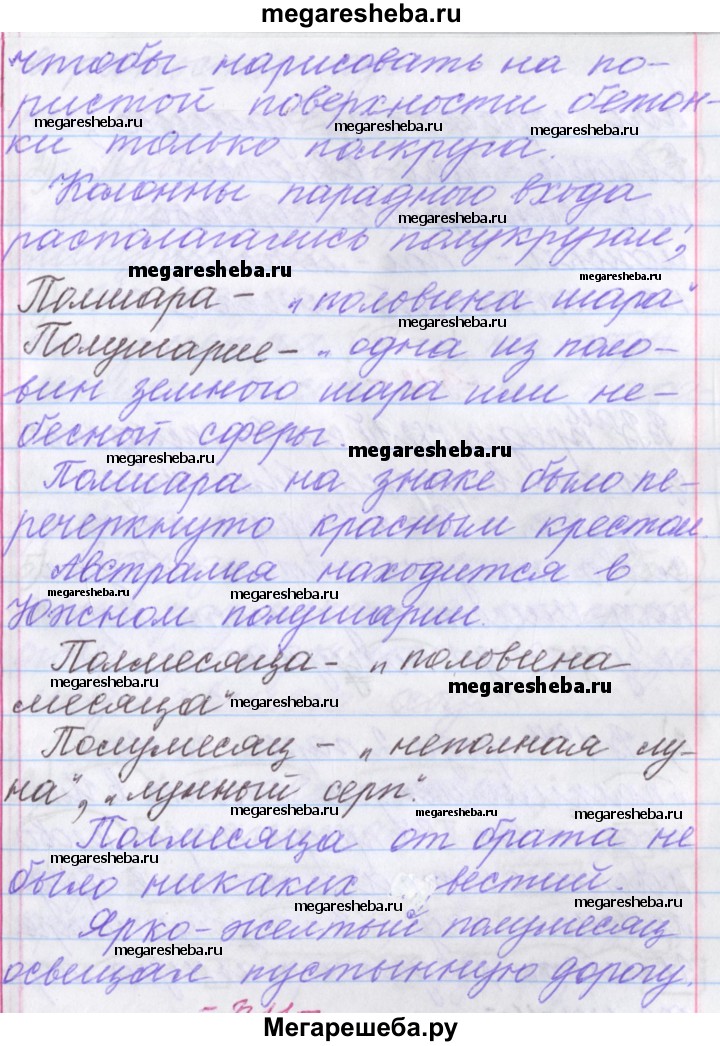 megaresheba.ru
чтобы нарисовать на по-
ристой поверхности бетон-
megaresheba.ru megaresheba.ru megaresheba.ru
ки только полкруга.
Колонны парадного входа
megaresheba.ru
располагались полукругом;
megaresheba.ru megaresheba.ru
Полшара – „половина шара“
megaresheba.ru
Полушарие – „одна из поло-
вин земного шара или не-
бесной сферы.
megaresheba.ru megaresheba.ru
Полшара на знаке было пе-
megaresheba.ru
речеркнуто красным крестом.
Австралия находится в
megaresheba.ru megaresheba.ru
Южном полушарии.
Полмесяца – „половина
megaresheba.ru
месяца“
megaresheba.ru
Полумесяц – „неполная лу-
на“, „лунный серп“.
megaresheba.ru megaresheba.ru megaresheba.ru
Полмесяца от брата не
megaresheba.ru
было никаких вестий.
megaresheba.ru megaresheba.ru
Ярко-желтый полумесяц
megaresheba.ru megaresheba.ru
освещал пустынную дорогу.
Мегарешеба.ру